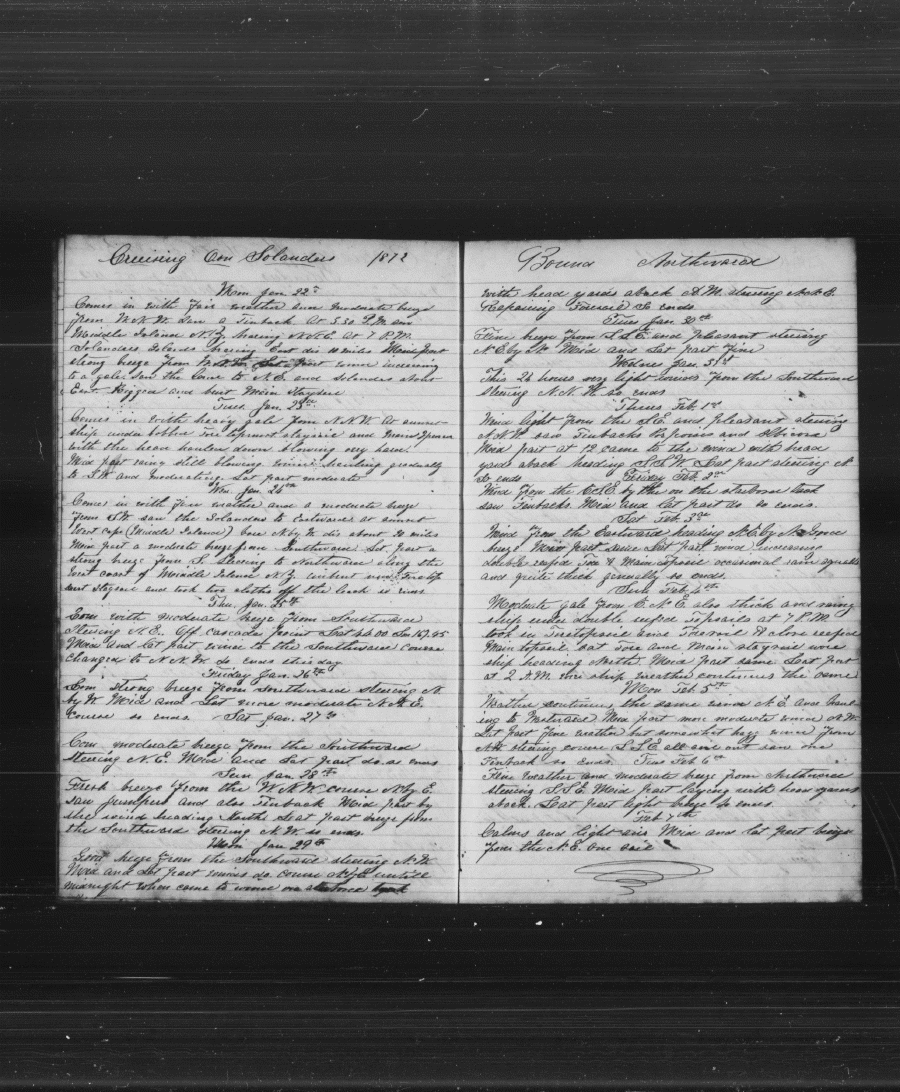 Cruising on Solanders 1872
Mon Jan. 22nd
Comes in with fair weather and moderate breeze
from W.N.W. saw a Finback At 5.30 P.M. saw
Middle Island N.Z. bearing N.N.E. At 7 P.M.
Solanders Islands bearing East dis 10 miles Mid part
strong breeze from Last part wind increasing
to a gale. saw the land to N.E. and Solanders about
East. Rigged and bent Main Staysail
Tues. Jan. 23rd
Comes in with heavy gale from N.N.W. At sunset
ship under fore topmast staysail and Main Spencer
with the head hauled down blowing very hard.
Mid part still blowing wind hauling gradually
to S.W. and moderating Lat part moderate
Wen. Jan. 24th
Comes in with fine weather and a moderate breeze
from S.W. saw the Solanders to Eastward at sunset
West Cape (Middle Island) bore N. by W. dis about 20 miles
Mid part a moderate breeze from Southward Lat. part a
strong breeze from S. Steering to Northward along the
West coast of Middle Island N.Z. unbent
staysail and took two cloths off the leach
Thu. Jan. 25th
Com with moderate breeze from Southward
Steering N.E. Off Cascades point Lat 44.00 Lon 167.45
Mid and Lat part wind to the Southward course
changed to N.N.W. so ends this day
Friday Jan. 26th
Com strong breeze from Southward steering N.
by W. Mid and Lat more moderate N.N.E.
course so ends. Sat Jan. 27th
Com moderate breeze from the Southward
steering N.E. Mid and Lat part do. so ends
Sun Jan 28th
Fresh breeze from the W.N.W. course N. by E.
saw jumpers and also Finback Mid part by
the wind heading North Lat part breeze from
the Southward steering N.W. so ends.
Mon Jan 29th
Good breeze from the Southward steering N.W.
Mid and Lat part winds do. course untill
midnight when come to wind on tack
Bound Northward
with head yards aback A.M. steering N.N.E.
Repairing Foresail So ends
Tues Jan. 30th
Fine breeze from S.S.E. and pleasant steering
N.E. by N. Mid and Lat part fine
Wednes Jan. 31st
This 24 hours very light winds from the Southward
steering N.N.W. so ends
Thurs Feb. 1st
Wind light from the S.E. and pleasant steering
N.N.W. saw Finbacks Porpoises and
Mid part at 12 came to the wind with head
yards aback heading S.S.W. Lat part steering N.
So ends Friday Feb. 2nd
Wind from the E.S.E. by the on the starboard tack
saw Finbacks. Mid and Lat part do so ends
Sat Feb. 3rd
Wind from the Eastward heading N.E. by N. Good
breeze Mid part same Lat part wind increasing
double reefed fore & Main topsail occasional rain squalls
and quite thick generally so ends.
Sun Feb. 4th
Moderate gale from E.N.E. also thick and rainy
ship under double reefed topsails at 7 P.M.
took in Foretopsail and Foresail & close reefed
Main topsail. set fore and Main staysail wore
ship heading North. Mid part same Lat part
at 2 A.M. wore ship weather continues the same
Mon Feb. 5th
Weather continues the same wind N.E. and haul-
ing to Northward Mid part more moderate wind N.W.
Lat part fine weather but somewhat hazy wind from
N.W. steering course S.S.E. all sail out saw one
Finback so ends. Tues Feb 6th
Fine weather and moderate breeze from Northward
steering S.S.E. Mid part laying with head yards
aback. Lat part light breeze so ends.
Feb 7th
Calms and light airs Mid and Lat part breeze
from the N.E. One sail